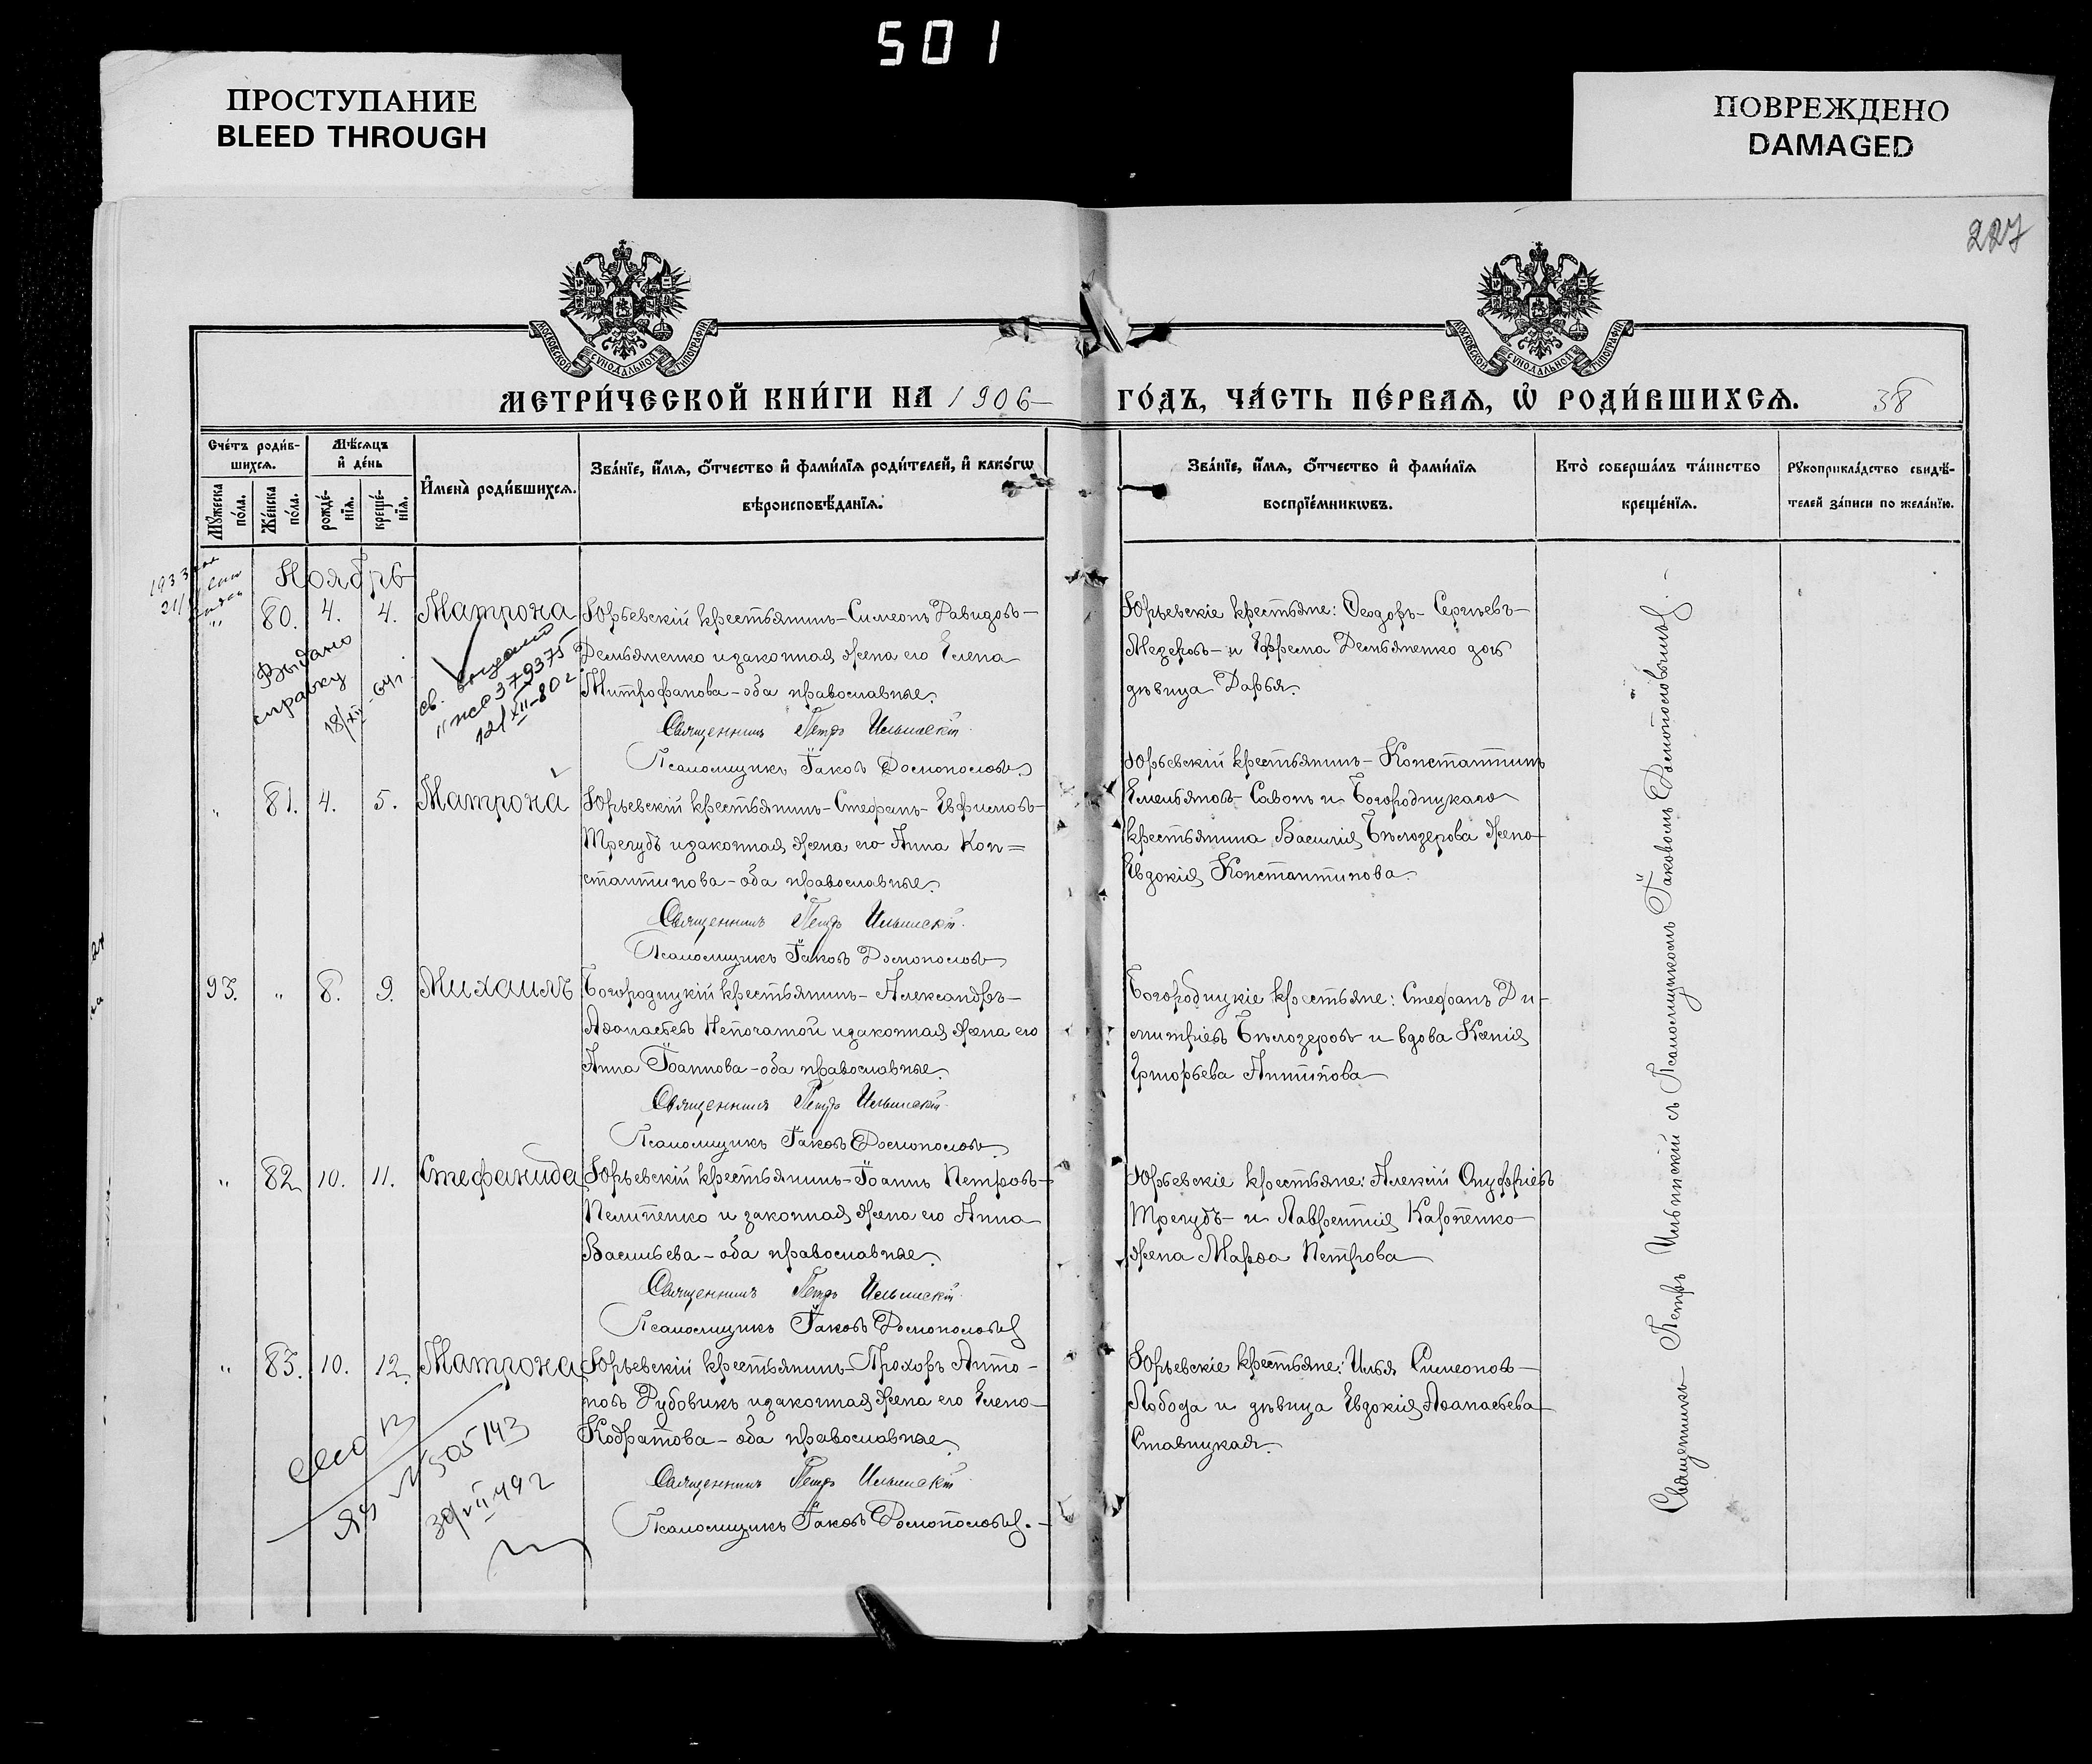 501
ПРОСТУПАНИЕ
BLEED THROUGH
ПОВРЕЖДЕНО
DAMAGED
227
МОСКОВСКОЙ СУНОДАЛЬНОЙ ТИПОГРАФІИ
МОСКОВСКОЙ СУНОДАЛЬНОЙ ТИПОГРАФІИ
МЕТРИ́ЧЕСКОЙ КНИ́ГИ НА 1906 ГО́ДЪ, ЧА́СТЬ ПЕ́РВАѦ, Ѡ҆ РОДИ́ВШИХСѦ. 38
Сче́тъ роди́в-
шихсѧ.
Мꙋжеска по́ла.
Же́нска по́ла.
Мѣ́сѧцъ
и҆ де́нь
рожде́-
нїѧ.
креще́-
нїѧ.
И҆мена̀ роди́вшихсѧ.
Зва́нїе, и҆́мѧ, ѻ҆́тчество и҆ фами́лїѧ роди́телей, и҆ како́гѡ
вѣроисповѣ́данїѧ.
Зва́нїе, и҆́мѧ, ѻ҆́тчество и҆ фами́лїѧ
воспрїе́мникѡвъ.
Кто̀ соверша́лъ та́инство
креще́нїѧ.
Рꙋкоприкла́дство свидѣ́-
телей за́писи по жела́нїю.
Ноябрь
1933
" 80. 4. 4. Матрона
Юрьевскій крестьянинъ - Симеонъ Давидовъ -
Демьяненко и законная жена его Елена
Митрофанова - оба православные.
Священникъ Петръ Ильинскій
Псаломщикъ Іаковъ Домополовъ
Юрьевскіе крестьяне: Ѳеодоръ - Сергѣевъ -
и Ефрема Демьяненко дочь
дѣвица Дарья.
Выдано
справку
18/XII - 64 г.
св. выдано
379375
12/XII-80 г
" 81. 4. 5. Матрона
Юрьевскій крестьянинъ - Стефанъ - Евфимовъ -
Трегубъ и законная жена его Анна Кон=
стантинова - оба православные.
Священникъ Петръ Ильинскій
Псаломщикъ Іаковъ
Юрьевскій крестьянинъ - Константинъ
Емельяновъ - Савонъ и Богородицкаго
крестьянина Василія Бѣлозерова жена
Евдокія Константинова.
93. " 8. 9. Михаилъ
Богородицкій крестьянинъ - Александръ -
Аѳанасьевъ Непочатой и законная жена его
Анна Іоаннова - оба православные.
Священникъ Петръ Ильинскій
Псаломщикъ Іаковъ
Богородицкіе крестьяне: Стефанъ Ди-
митріевъ Бѣлозеровъ и вдова Ксенія
Григорьева Антипова
" 82 10. 11. Стефанида
Юрьевскій крестьянинъ - Іоаннъ Петровъ -
Пелипенко и законная жена его Анна
Васильева - оба православные.
Священникъ Петръ Ильинскій
Псаломщикъ Іаковъ
Юрьевскіе крестьяне: Алексій Онуфріевъ
Трегубъ - и Лаврентія
жена Марѳа Петрова
" 83. 10. 12. Матрона
Юрьевскій крестьянинъ - Прохоръ Анто-
новъ Рубовикъ и законная жена его Елена
Кодратова - оба православные.
Священникъ Петръ Ильинскій
Псаломщикъ Іаковъ
Юрьевскіе крестьяне: Илья Симеоновъ -
Лобода и дѣвица Евдокія Аѳанасьева
Ставицкая.
505143
30/VII 49 г
Священникъ Петръ Ильинскій съ Псаломщикомъ Іаковомъ